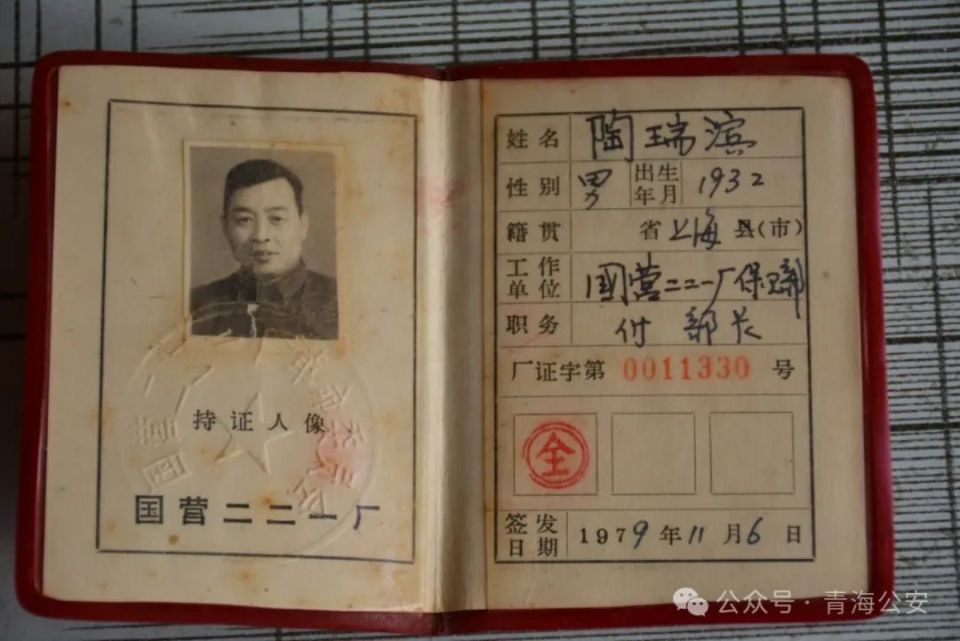 持证人像
国营二二一厂
姓名 陶瑞滨
性别 男 出生年月 1932
籍贯 省上海县(市)
工作单位 国营二二一厂保卫部
职务 付部长
厂证字第 0011330 号
全
签发日期 1979年11月6日
公众号·青海公安